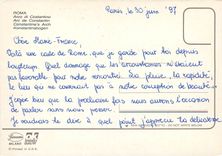 ROMA
Arco di Costantino
Arc de Constantin
Constantine's Arch
Konstantinsbogen
Paris le 30 juin '97
Chère Marie-France,
Voilà une carte de Rome, que je garde pour toi depuis
longtemps. Quel dommage que les circonstances n'étaient
pas favorable pour notre rencontre. La place, la rapidité,
le lieu ne convenait pas à notre conception de beauté.
J'espère bien que la prochaine fois nous aurons l'occasion
de parler dans nous presser.
Je voudrais te dire à quel point j'apprécie la délicatesse